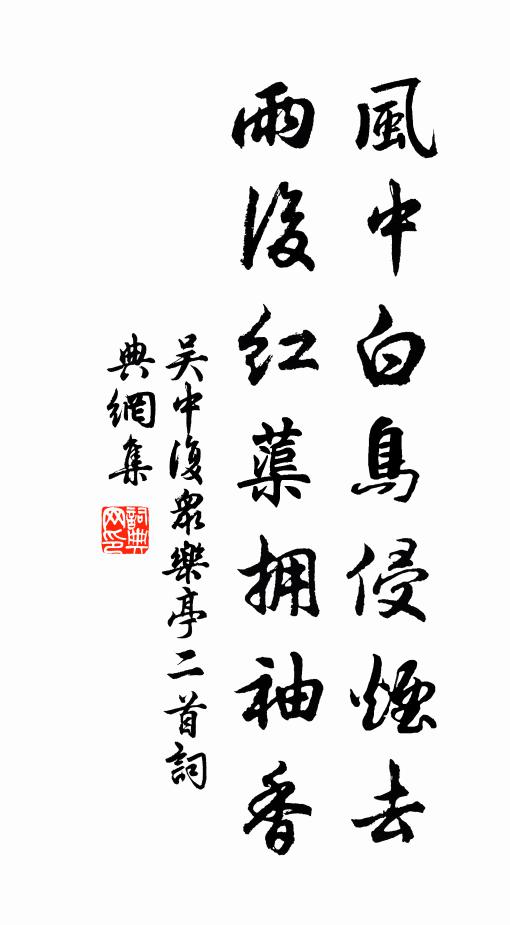 風中白鳥侵煙去
雨後紅蕖拥袖香
吴中復眾樂亭二首詞
典網集
詞典网印